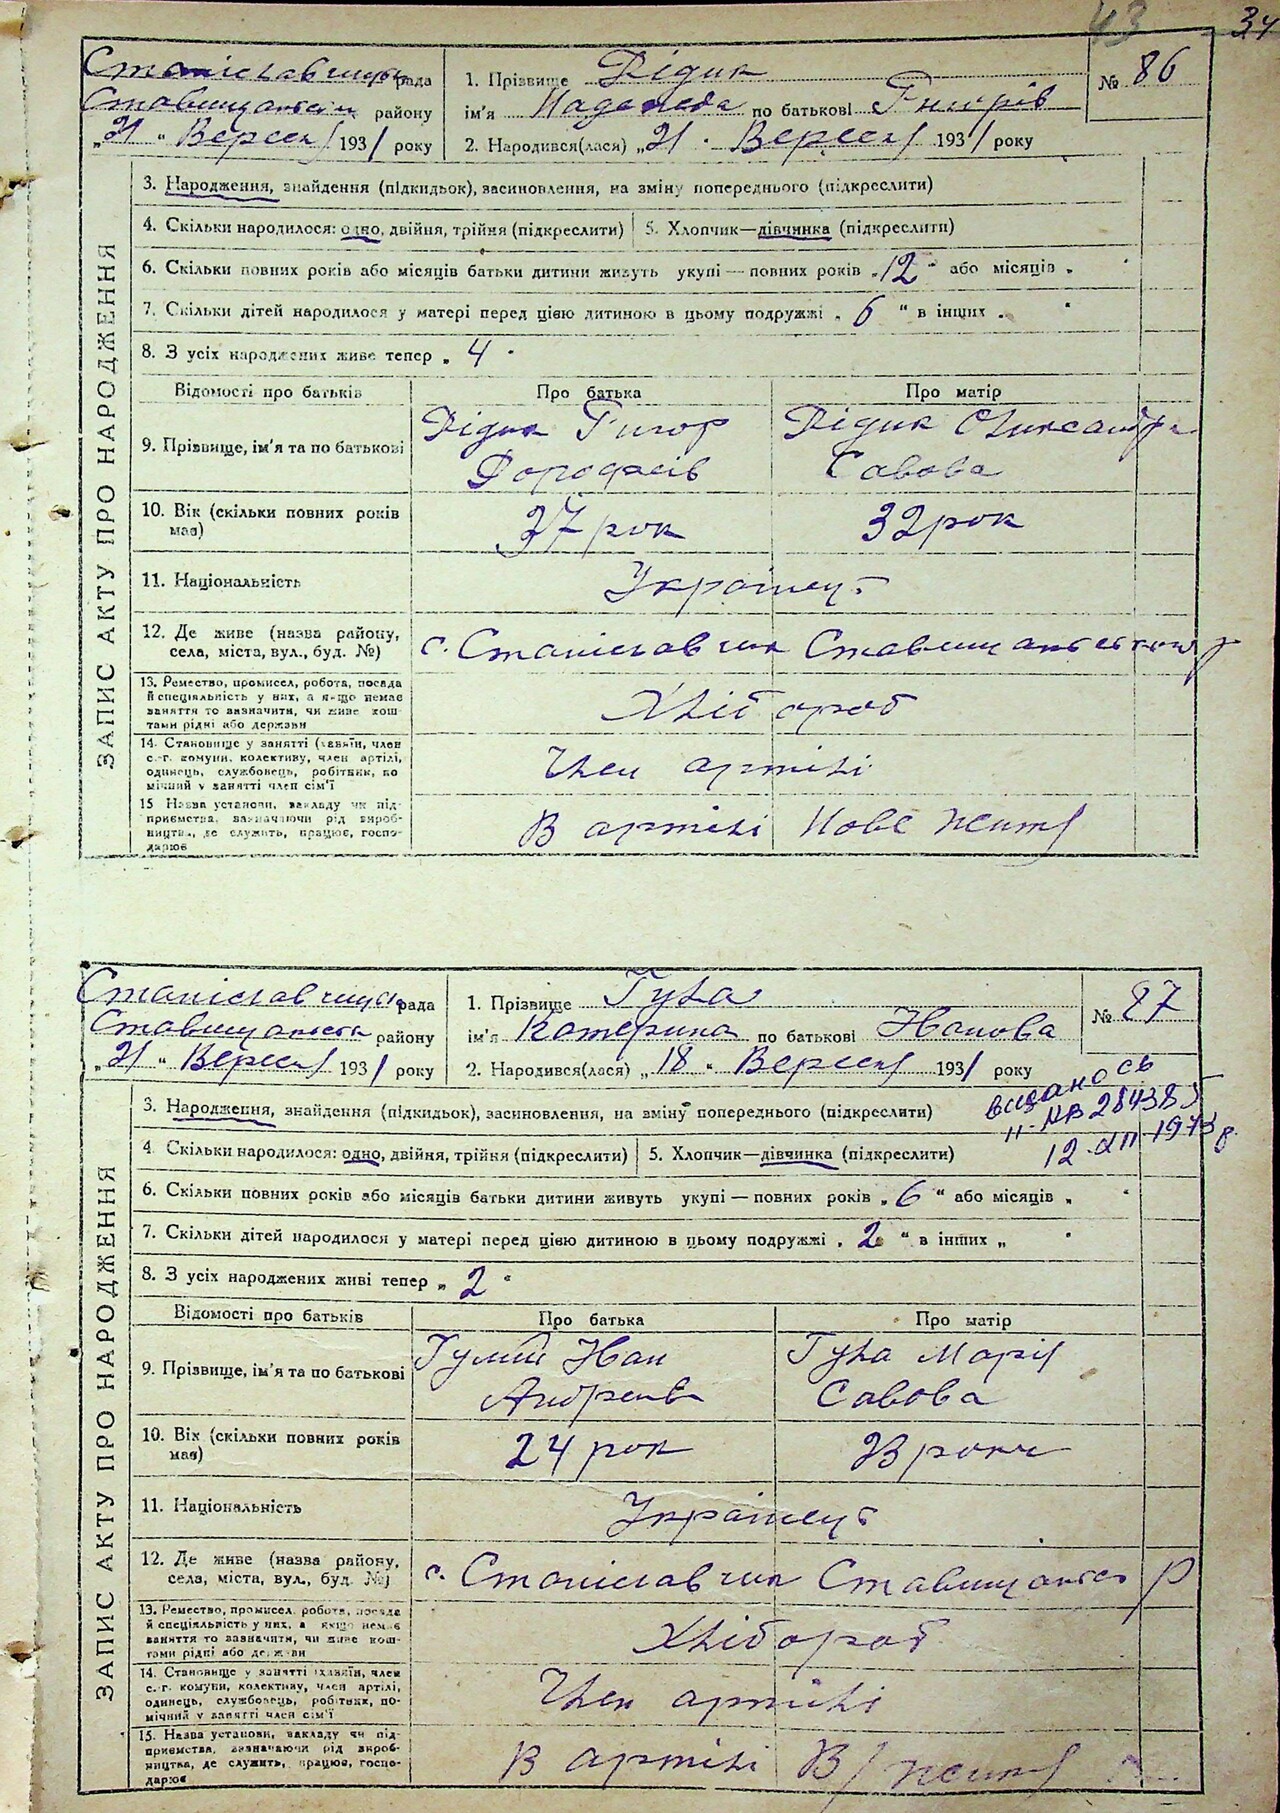 43 34
Станіславчицьк рада
Ставищанськ району
„21“ Вересня 1931 року
1. Прізвище Дідик
ім'я Надежда по батькові Григорів
2. Народився(лася) „21“ Вересня 1931 року
№ 86
ЗАПИС АКТУ ПРО НАРОДЖЕННЯ
3. Народження, знайдення (підкидьок), засиновлення, на зміну попереднього (підкреслити)
4. Скільки народилося: одно, двійня, трійня (підкреслити) 5. Хлопчик—дівчинка (підкреслити)
6. Скільки повних років або місяців батьки дитини живуть укупі — повних років „12“ або місяців „ “
7. Скільки дітей народилося у матері перед цією дитиною в цьому подружжі „6“ в інших „ “
8. З усіх народжених живе тепер „4“
Відомості про батьків Про батька Про матір
9. Прізвище, ім'я та по батькові
Дідик Григор Дідик Олександра
Дорофеїв Савова
10. Вік (скільки повних років має)
37 рок 32 рок
11. Національність Українец
12. Де живе (назва району, села, міста, вул., буд. №)
с. Станіславчик Ставищанського р
13. Ремество, промисел, робота, посада
й спеціяльність у них, а якщо немає
заняття то зазначити, чи живе кош-
тами рідні або держави
Хлібороб
14. Становище у занятті (хазяїн, член
с.-г. комуни, колективу, член артілі,
одинець, службовець, робітник, по
мічний у занятті член сім'ї
Член артілі
15 Назва установи, закладу чи під-
приємства, зазначаючи рід вироб-
ництва, де служить, працює, госпо-
дарює
В артілі Нове життя
Станіславчицьк рада
Ставищанськ району
„21“ Вересня 1931 року
1. Прізвище Гула
ім'я Катерина по батькові Іванова
2. Народився(лася) „18“ Вересня 1931 року
№ 87
видано сь
II-НВ 284385
12-XII-1973 р.
ЗАПИС АКТУ ПРО НАРОДЖЕННЯ
3. Народження, знайдення (підкидьок), засиновлення, на зміну попереднього (підкреслити)
4. Скільки народилося: одно, двійня, трійня (підкреслити) 5. Хлопчик—дівчинка (підкреслити)
6. Скільки повних років або місяців батьки дитини живуть укупі — повних років „6“ або місяців „ “
7. Скільки дітей народилося у матері перед цією дитиною в цьому подружжі „2“ в інших „ “
8. З усіх народжених живі тепер „2“
Відомості про батьків Про батька Про матір
9. Прізвище, ім'я та по батькові
Іван Гула Марія
Андреїв Савова
10. Вік (скільки повних років має)
24 рок 23 роки
11. Національність Українец
12. Де живе (назва району, села, міста, вул., буд. №)
с. Станіславчик Ставищансь р
13. Ремество, промисел, робота, посада
й спеціяльність у них, а якщо немає
заняття то зазначити, чи живе кош-
тами рідні або держави
Хлібороб
14. Становище у занятті (хазяїн, член
с.-г. комуни, колективу, член артілі,
одинець, службовець, робітник, по-
мічний у занятті член сім'ї
Член артілі
15. Назва установи, закладу чи під-
приємства, зазначаючи рід вироб-
ництва, де служить, працює, госпо-
дарює
В артілі життя